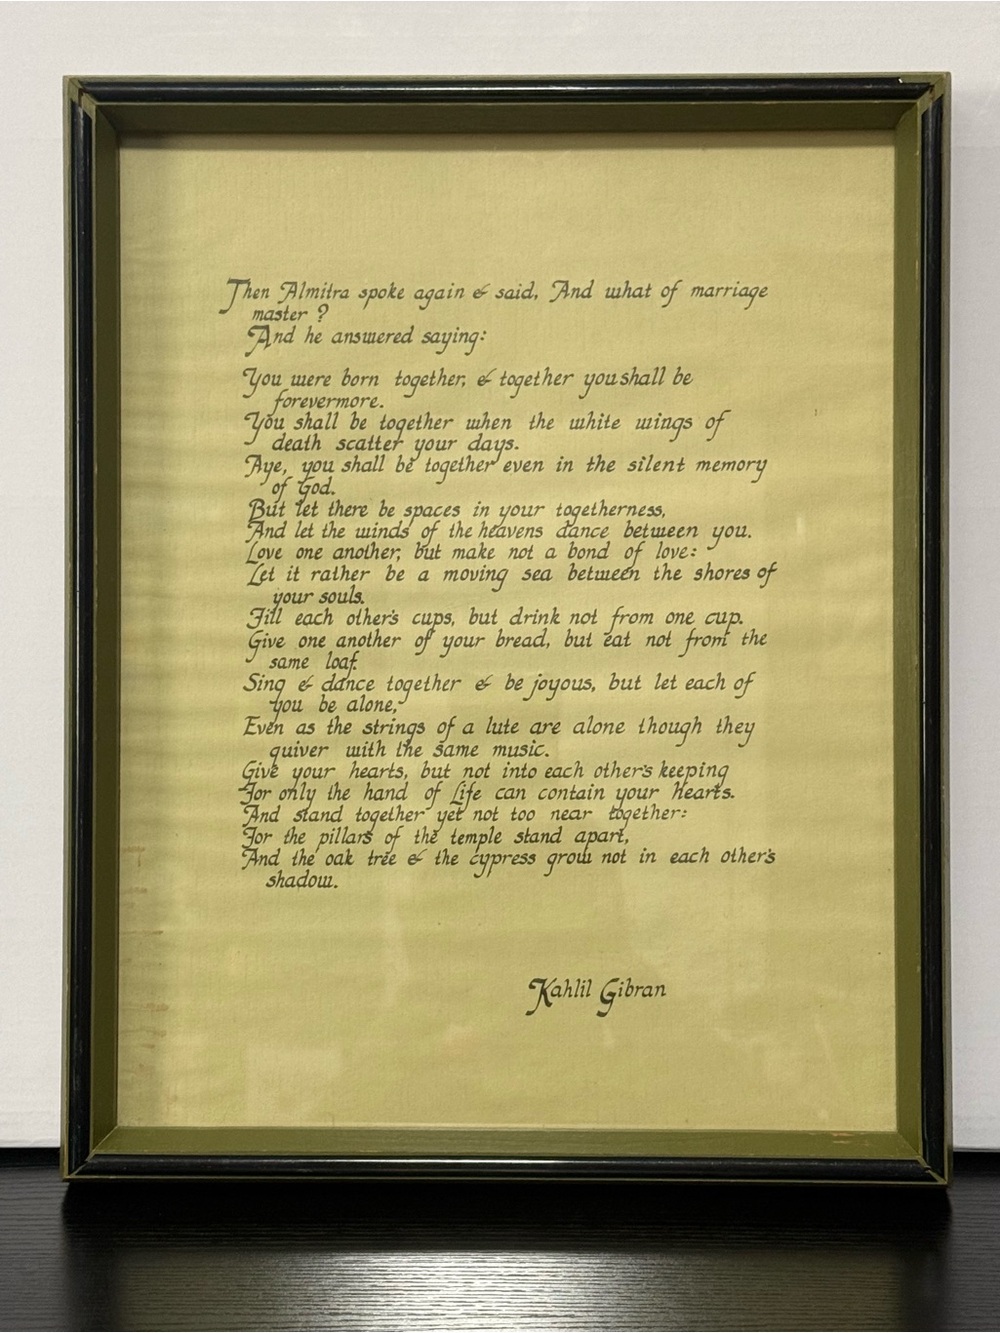 Then Almitra spoke again & said, And what of marriage
master ?
And he answered saying:
You were born together, & together you shall be
forevermore.
You shall be together when the white wings of
death scatter your days.
Aye, you shall be together even in the silent memory
of God.
But let there be spaces in your togetherness,
And let the winds of the heavens dance between you.
Love one another, but make not a bond of love:
Let it rather be a moving sea between the shores of
your souls.
Fill each other's cups, but drink not from one cup.
Give one another of your bread, but eat not from the
same loaf.
Sing & dance together & be joyous, but let each of
you be alone,
Even as the strings of a lute are alone though they
quiver with the same music.
Give your hearts, but not into each other's keeping
For only the hand of Life can contain your Hearts.
And stand together yet not too near together:
For the pillars of the temple stand apart,
And the oak tree & the cypress grow not in each other's
shadow.
Kahlil Gibran